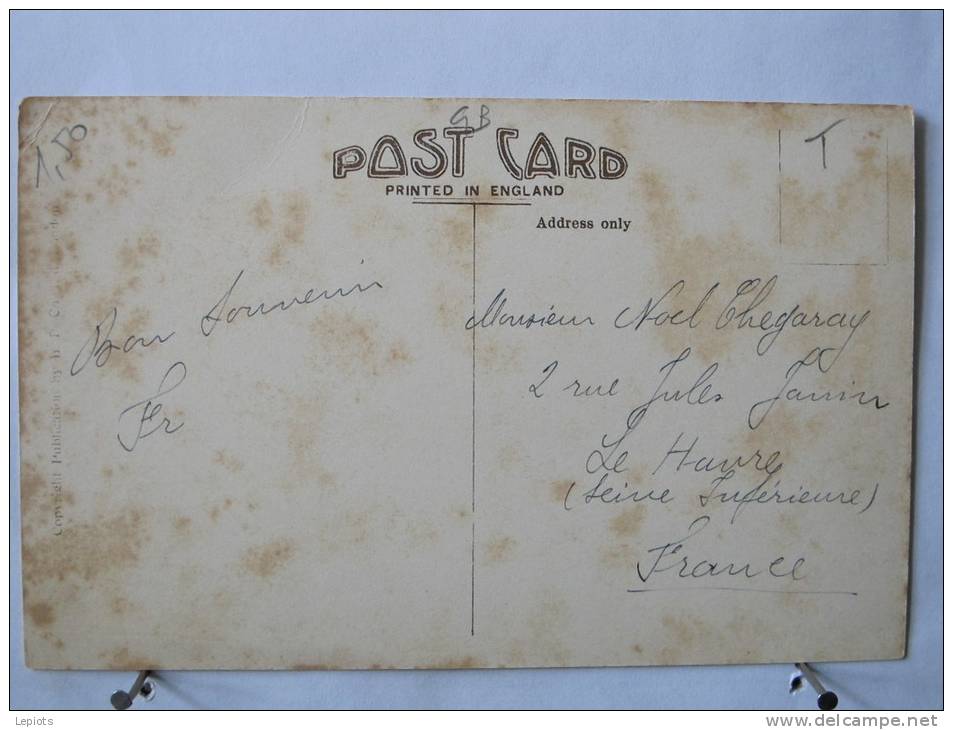 1,50
GB
T
POST CARD
PRINTED IN ENGLAND
Address only
Copyright Publication by
Bon Souvenir
Fr
Monsieur Noel Chegaray
2 rue Jules Janin
Le Havre
(Seine Inférieure)
France
Lepiots
www.delcampe.net